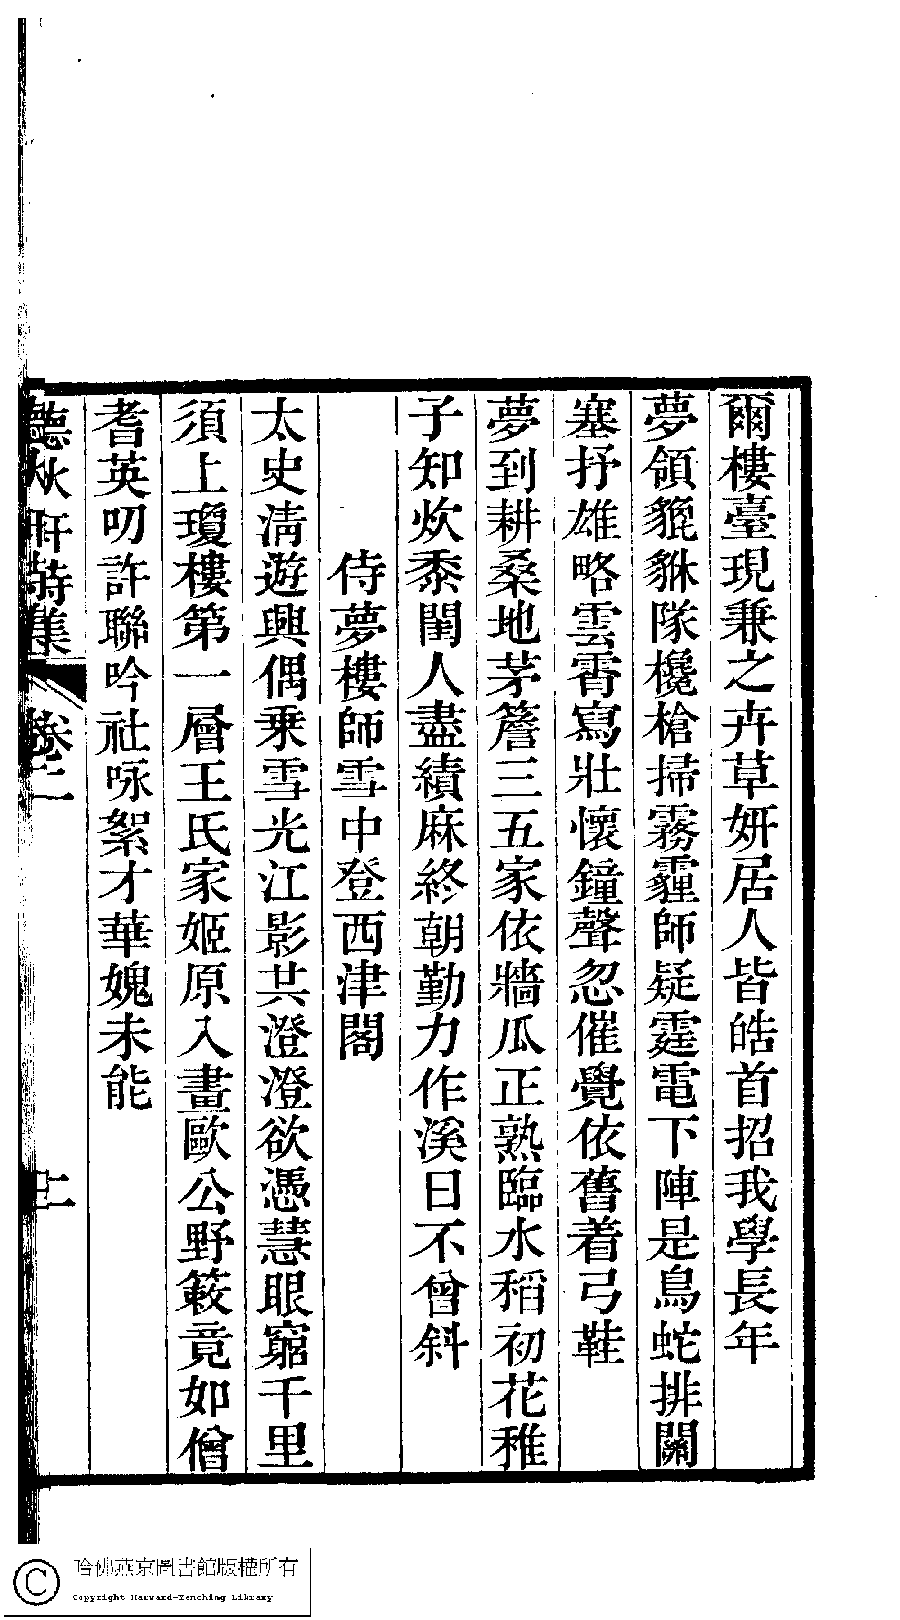 爾樓臺現兼之卉草妍居人皆皓首招我學長年
夢領貔貅隊欃槍掃霧霾師疑霆電下陣是鳥蛇排關
塞抒雄略雲霄寫壯懷鐘聲忽催覺依舊着弓鞋
夢到耕桑地茅簷三五家依牆瓜正熟臨水稻初花稚
子知炊黍閨人盡績麻終朝勤力作溪日不曾斜
侍夢樓師雪中登西津閣
太史清遊興偶乘雪光江影共澄澄欲憑慧眼窮千里
須上瓊樓第一層王氏家姬原入畫歐公野簌竟如僧
耆英叨許聯吟社咏絮才華媿未能
聽秋軒詩集 卷二 十二
哈佛燕京圖書館版權所有
Copyright Harvard-Yenching Library